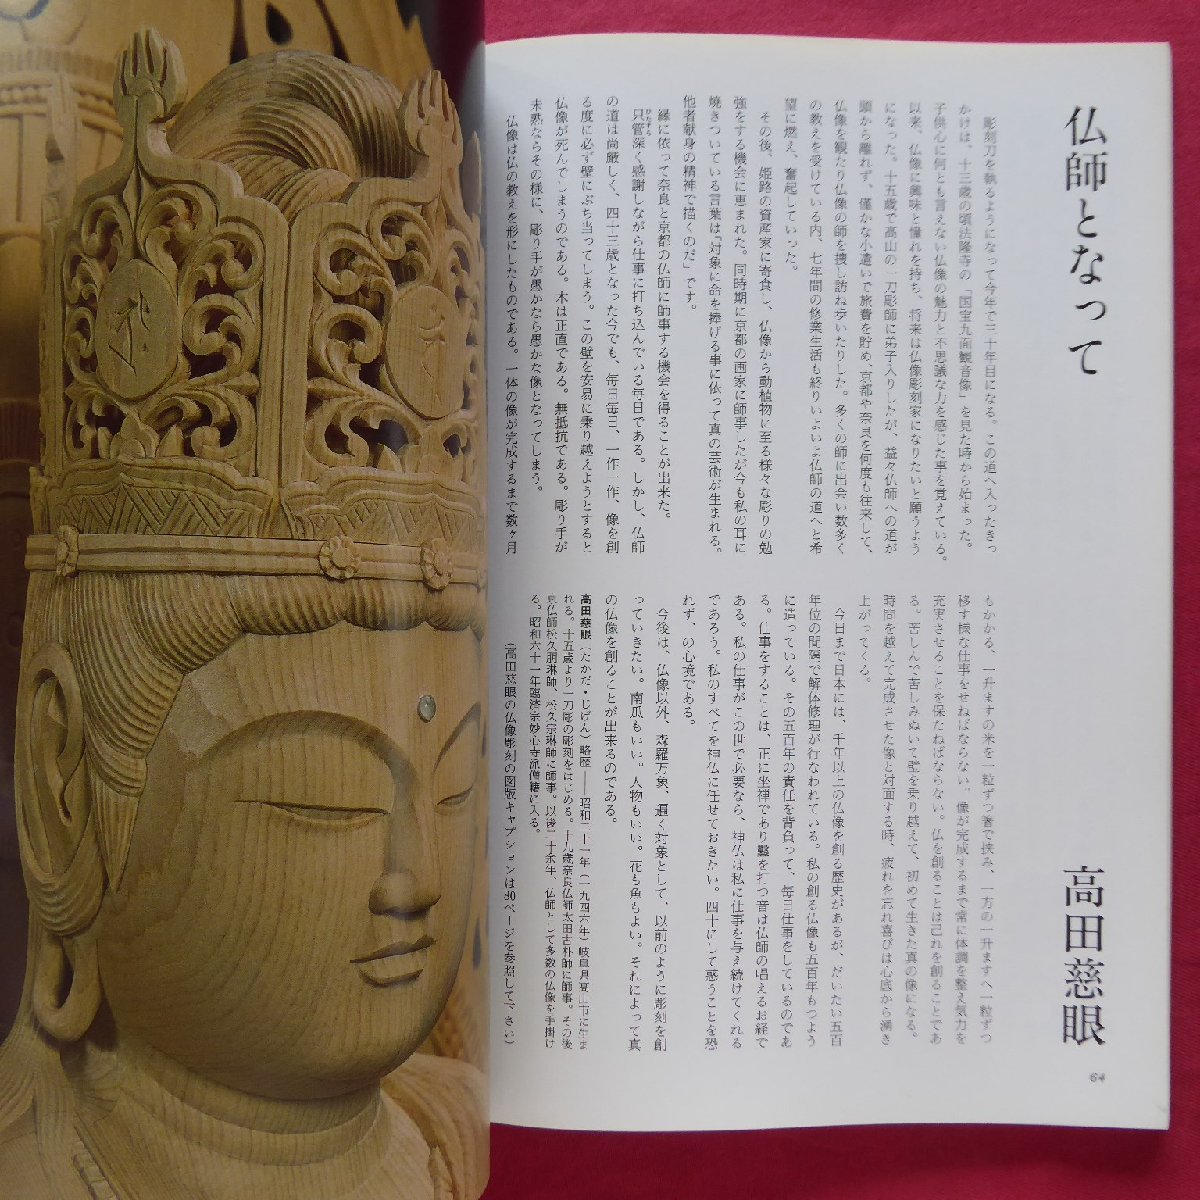 仏師となって
高田慈眼
彫刻刀を執るようになって今年で三十年目になる。この道へ入ったきっ
かけは、十三歳の頃法隆寺の「国宝九面観音像」を見た時から始まった。
子供心に何とも言えない仏像の魅力と不思議な力を感じた事を覚えている。
以来、仏像に興味と憧れを持ち、将来は仏像彫刻家になりたいと願うよう
になった。十五歳で高山の一刀彫師に弟子入りしたが、益々仏師への道が
頭から離れず、僅かな小遣いで旅費を貯め、京都や奈良を何度も往来して、
仏像を観たり仏像の師を捜し訪ね歩いたりした。多くの師に出会い数多く
の教えを受けている内、七年間の修業生活も終りいよいよ仏師の道へと希
望に燃え、奮起していった。
その後、姫路の資産家に寄食し、仏像から動植物に至る様々な彫りの勉
強をする機会に恵まれた。同時期に京都の画家に師事したが今も私の耳に
焼きついている言葉は「対象に命を捧げる事に依って真の芸術が生まれる。
他者献身の精神で描くのだ」です。
縁に依って奈良と京都の仏師に師事する機会を得ることが出来た。
只管深く感謝しながら仕事に打ち込んでいる毎日である。しかし、仏師
の道は尚厳しく、四十三歳となった今でも、毎日毎日、一作一作、像を創
る度に必ず壁にぶち当ってしまう。この壁を安易に乗り越えようとすると
仏像が死んでしまうのである。木は正直である。無抵抗である。彫り手が
未熟ならその様に、彫り手が愚かなら愚かな像となってしまう。
仏像は仏の教えを形にしたものである。一体の像が完成するまで数ヶ月
もかかる、一升ますの米を一粒ずつ箸で挟み、一方の一升ますへ一粒ずつ
移す様な仕事をせねばならない。像が完成するまで常に体調を整え気力を
充実させることを保たねばならない。仏を創ることは己れを創ることであ
る。苦しんで苦しみぬいて壁を乗り越えて、初めて生きた真の像になる。
時間を越えて完成させた像と対面する時、疲れを忘れ喜びは心底から湧き
上がってくる。
今日まで日本には、千年以上の仏像を創る歴史があるが、だいたい五百
年位の間隔で解体修理が行なわれている。私の創る仏像も五百年もつよう
に造っている。その五百年の責任を背負って、毎日仕事をしているのであ
る。仕事をすることは、正に坐禅であり鑿を打つ音は仏師の唱えるお経で
ある。私の仕事がこの世で必要なら、神仏は私に仕事を与え続けてくれる
であろう。私のすべてを神仏に任せておきたい。四十にして惑うことを恐
れず、の心境である。
今後は、仏像以外、森羅万象、遍く対象として、以前のように彫刻を創
っていきたい。南瓜もいい。人物もいい。花も魚もよい。それによって真
の仏像を創ることが出来るのである。
高田慈眼（たかだ・じげん）略歴——昭和二十一年（一九四六年）岐阜県高山市に生ま
れる。十五歳より一刀彫の彫刻をはじめる。十九歳奈良仏師太田古朴師に師事。その後
京仏師松久朋琳師、松久宗琳師に師事。以後二十余年、仏師として多数の仏像を手掛け
る。昭和六十一年臨済宗妙心寺派僧籍に入る。
（高田慈眼の仏像彫刻の図版キャプションは80ページを参照して下さい）
64